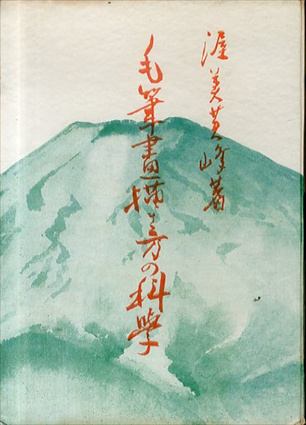 渥美芙峰著
毛筆畫描き方の科學